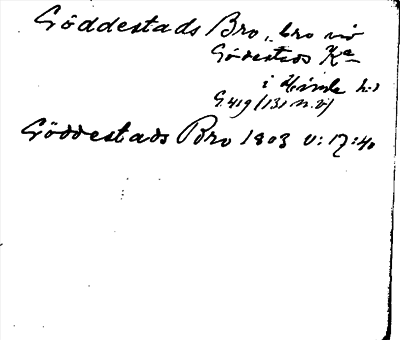 Göddestads Bro, bro vid
Gödestads Ka
i Himle h:d
G. 419 (131 n. v)
Göddestads Bro 1803 V: 17: 40